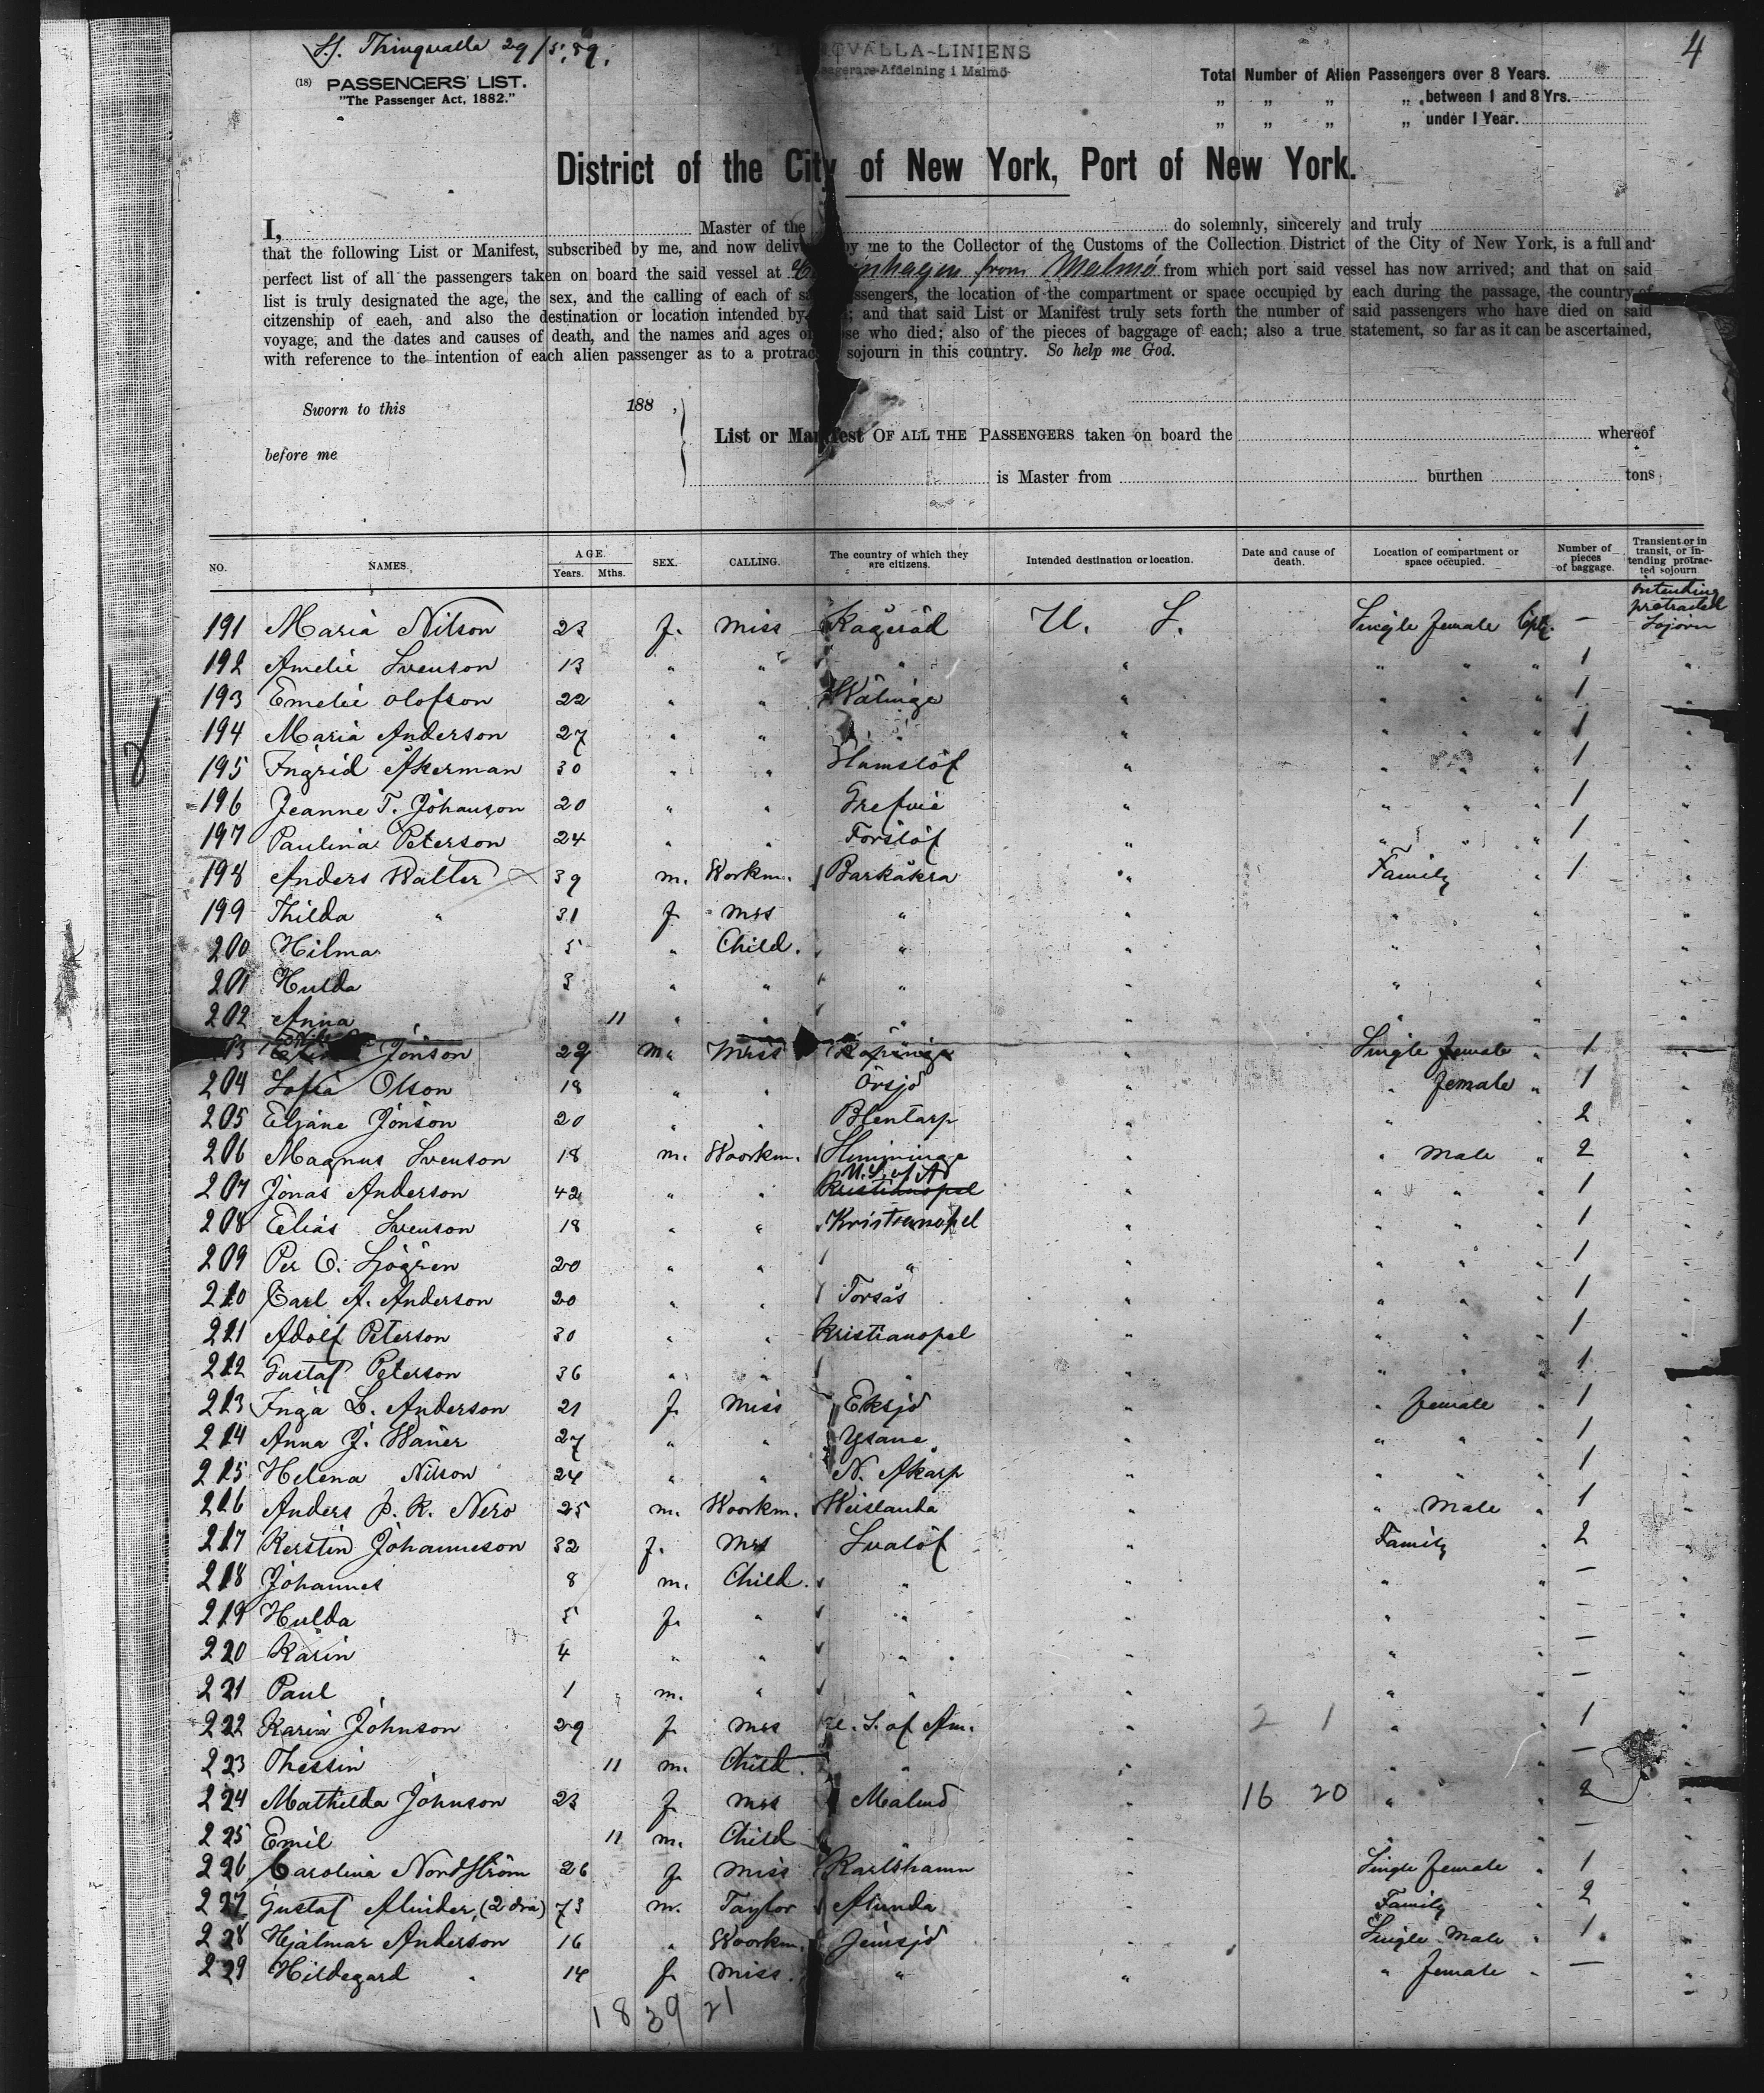 S.S. Thingvalla 29/5. 89.
VALLA-LINIENS
Afdelning i Malmö
4
(18) PASSENGERS' LIST.
"The Passenger Act, 1882."
Total Number of Alien Passengers over 8 Years.
„ „ „ „ between 1 and 8 Yrs.
„ „ „ „ under 1 Year.
District of the City of New York, Port of New York.
I, Master of the do solemnly, sincerely and truly
that the following List or Manifest, subscribed by me, and now deliv by me to the Collector of the Customs of the Collection District of the City of New York, is a full and
perfect list of all the passengers taken on board the said vessel at nhagen from Malmö from which port said vessel has now arrived; and that on said
list is truly designated the age, the sex, and the calling of each of sa ssengers, the location of the compartment or space occupied by each during the passage, the country of
citzenship of eaeh, and also the destination or location intended by ; and that said List or Manifest truly sets forth the number of said passengers who have died on said
voyage, and the dates and causes of death, and the names and ages o se who died; also of the pieces of baggage of each; also a true statement, so far as it can be ascertained,
with reference to the intention of each alien passenger as to a protrac sojourn in this country. So help me God.
Sworn to this 188 ,
before me
List or Manifest OF ALL THE PASSENGERS taken on board the whereof
is Master from burthen tons
NO. NAMES. AGE. Years. Mths. SEX. CALLING. The country of which they are citizens. Intended destination or location. Date and cause of death. Location of compartment or space occupied. Number of pieces of baggage. Transient or in transit, or intending protracted sojourn
191 Maria Nilson 23 f. Miss Kageröd U. S. Single female Cpt. — intending protracted Sojorn
192 Amelie Svenson 13 " " " " " " " 1 "
193 Emelie Olofson 22 " " Kälinge " " " " 1 "
194 Maria Anderson 27 " " " " " " " 1 "
195 Ingrid Åkerman 30 " " Hamslöf " " " " 1 "
196 Jeanne T. Johanson 20 " " Grefvie " " " " 1 "
197 Paulina Peterson 24 " " Forslöf " " " " 1 "
198 Anders Walter 39 m. Workm. Barkåkra " Family " 1 "
199 Thilda " 31 f. Mrs " " " " "
200 Hilma 5 " Child. " " " " "
201 Hulda 3 " " " " " " "
202 Anna 11 " " " " " " "
Jönson 29 m. Single female " 1 "
204 Sofia Olson 18 " " Örsjö " " female " 1 "
205 Eljane Jönson 20 " " Blentarp " " " 2 "
206 Magnus Svenson 18 m. Woorkm. Himminge " " Male " 2 "
207 Jonas Anderson 42 " " Kristianopel U.S. of A " " " " 1 "
208 Elias Svenson 18 " " Kristianopel " " " " 1 "
209 Per O. Sjögren 20 " " " " " " " 1 "
210 Carl A. Anderson 20 " " Torsås " " " " 1 "
211 Adolf Peterson 30 " " Kristianopel " " " " 1 "
212 Gustaf Peterson 36 " " " " " " " 1 "
213 Inga L. Anderson 21 f. Miss Eksjö " " female " 1 "
214 Anna J. Waner 27 " " Ysane " " " " 1 "
215 Helena Nilson 24 " " N. Åkarp " " " " 1 "
216 Anders P. K. Nero 25 m. Woorkm. Wislanda " " Male " 1 "
217 Kerstin Johanneson 32 f. Mrs Svalöf " Family " 2 "
218 Johannes 8 m. Child. " " " " — "
219 Hulda 5 f. " " " " " — "
220 Karin 4 " " " " " " — "
221 Paul 1 m. " " " " " — "
222 Karin Johnson 29 f. Mrs U. S. of Am. " 2 1 " " 1 "
223 Thessin 11 m. Child. " " " " — "
224 Mathilda Johnson 23 f. Mrs Malmö " 16 20 " " 2 "
225 Emil 11 m. Child " " " " — "
226 Carolina Nordström 26 f. Miss Karlshamn " Single female " 1 "
227 Gustaf (2 dra) 73 m. Taylor Alunda " Family " 2 "
228 Hjalmar Anderson 16 " Woorkm. Jemsjö " Single Male " 1 "
229 Hildegard " 14 f. Miss. " " " female " — "
18 39 21